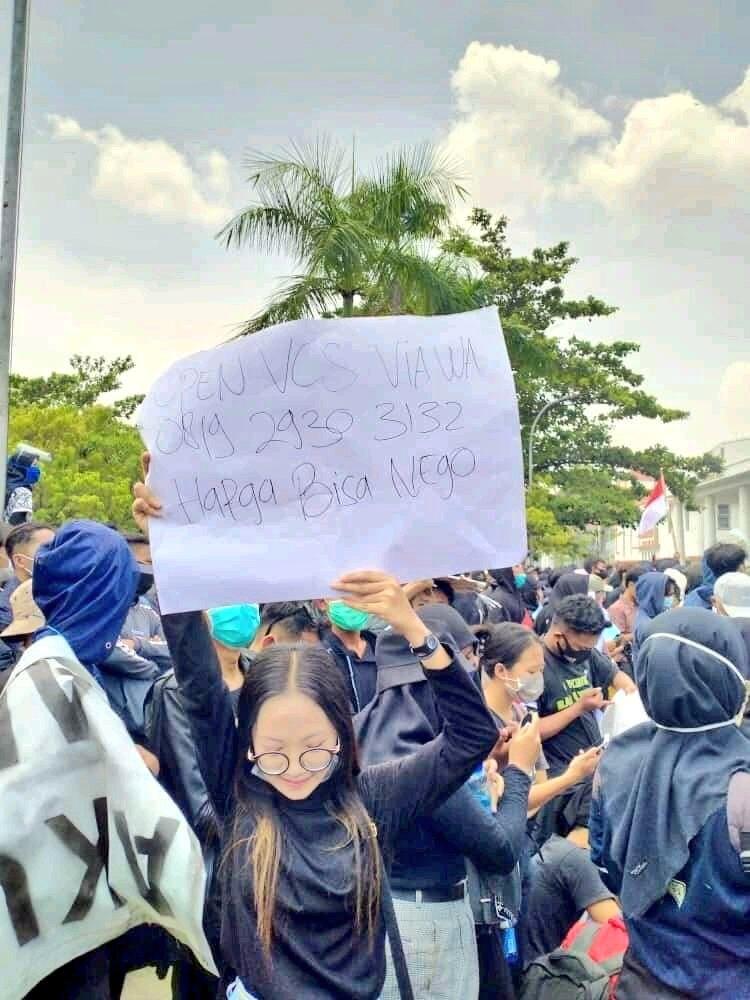 OPEN VCS VIA WA
0819 2930 3132
HaRga Bisa NEgo